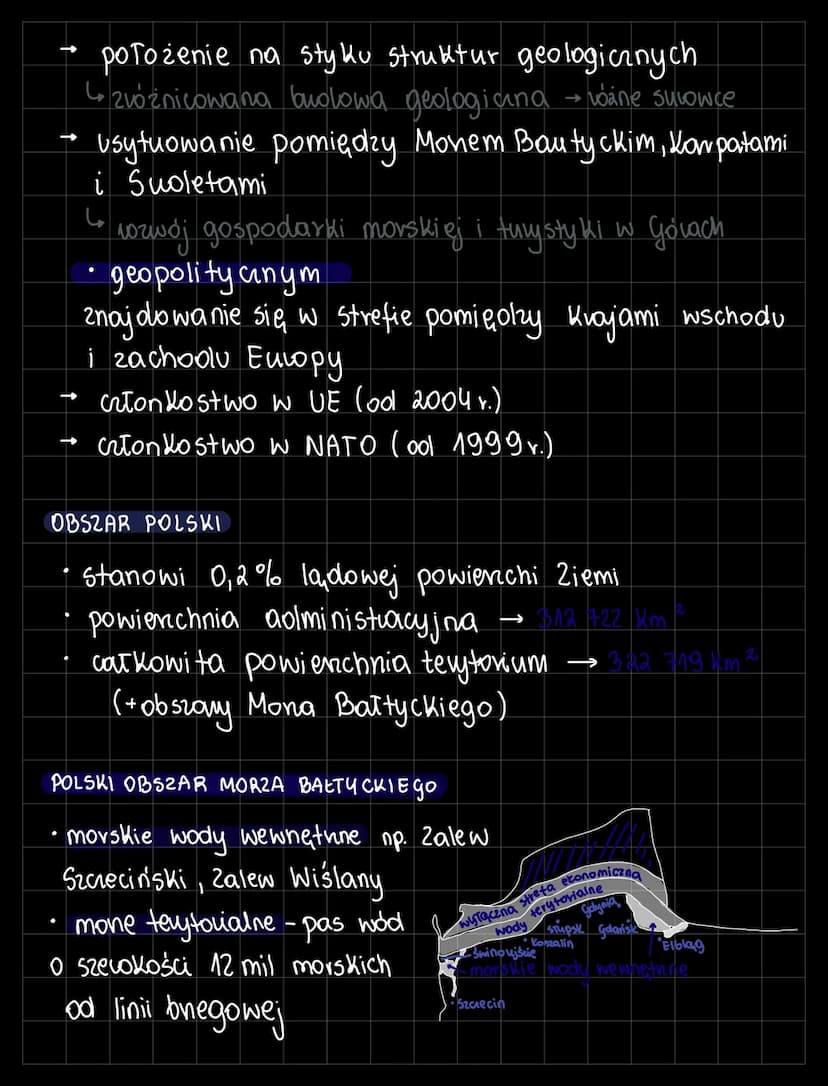 → położenie na styku struktur geologicznych
↳ zróżnicowana budowa geologiczna → różne surowce
→ usytuowanie pomiędzy Morzem Bałtyckim, Karpatami
i Sudetami
↳ rozwój gospodarki morskiej i turystyki w Górach
• geopolitycznym
znajdowanie się w strefie pomiędzy krajami wschodu
i zachodu Europy
→ członkostwo w UE (od 2004 r.)
→ członkostwo w NATO (od 1999 r.)
OBSZAR POLSKI
• stanowi 0,2% lądowej powierzchi Ziemi
• powierzchnia administracyjna → 312 722 km²
• całkowita powierzchnia terytorium → 322 719 km²
(+obszary Morza Bałtyckiego)
POLSKI OBSZAR MORZA BAŁTYCKIEGO
• morskie wody wewnętrzne np. Zalew
Szczeciński, Zalew Wiślany
• morze terytorialne - pas wód
o szerokości 12 mil morskich
od linii brzegowej
wyłączna strefa ekonomiczna
wody terytorialne
Gdynia
Słupsk Gdańsk
Koszalin Elbląg
Świnoujście
morskie wody wewnętrzne
Szczecin